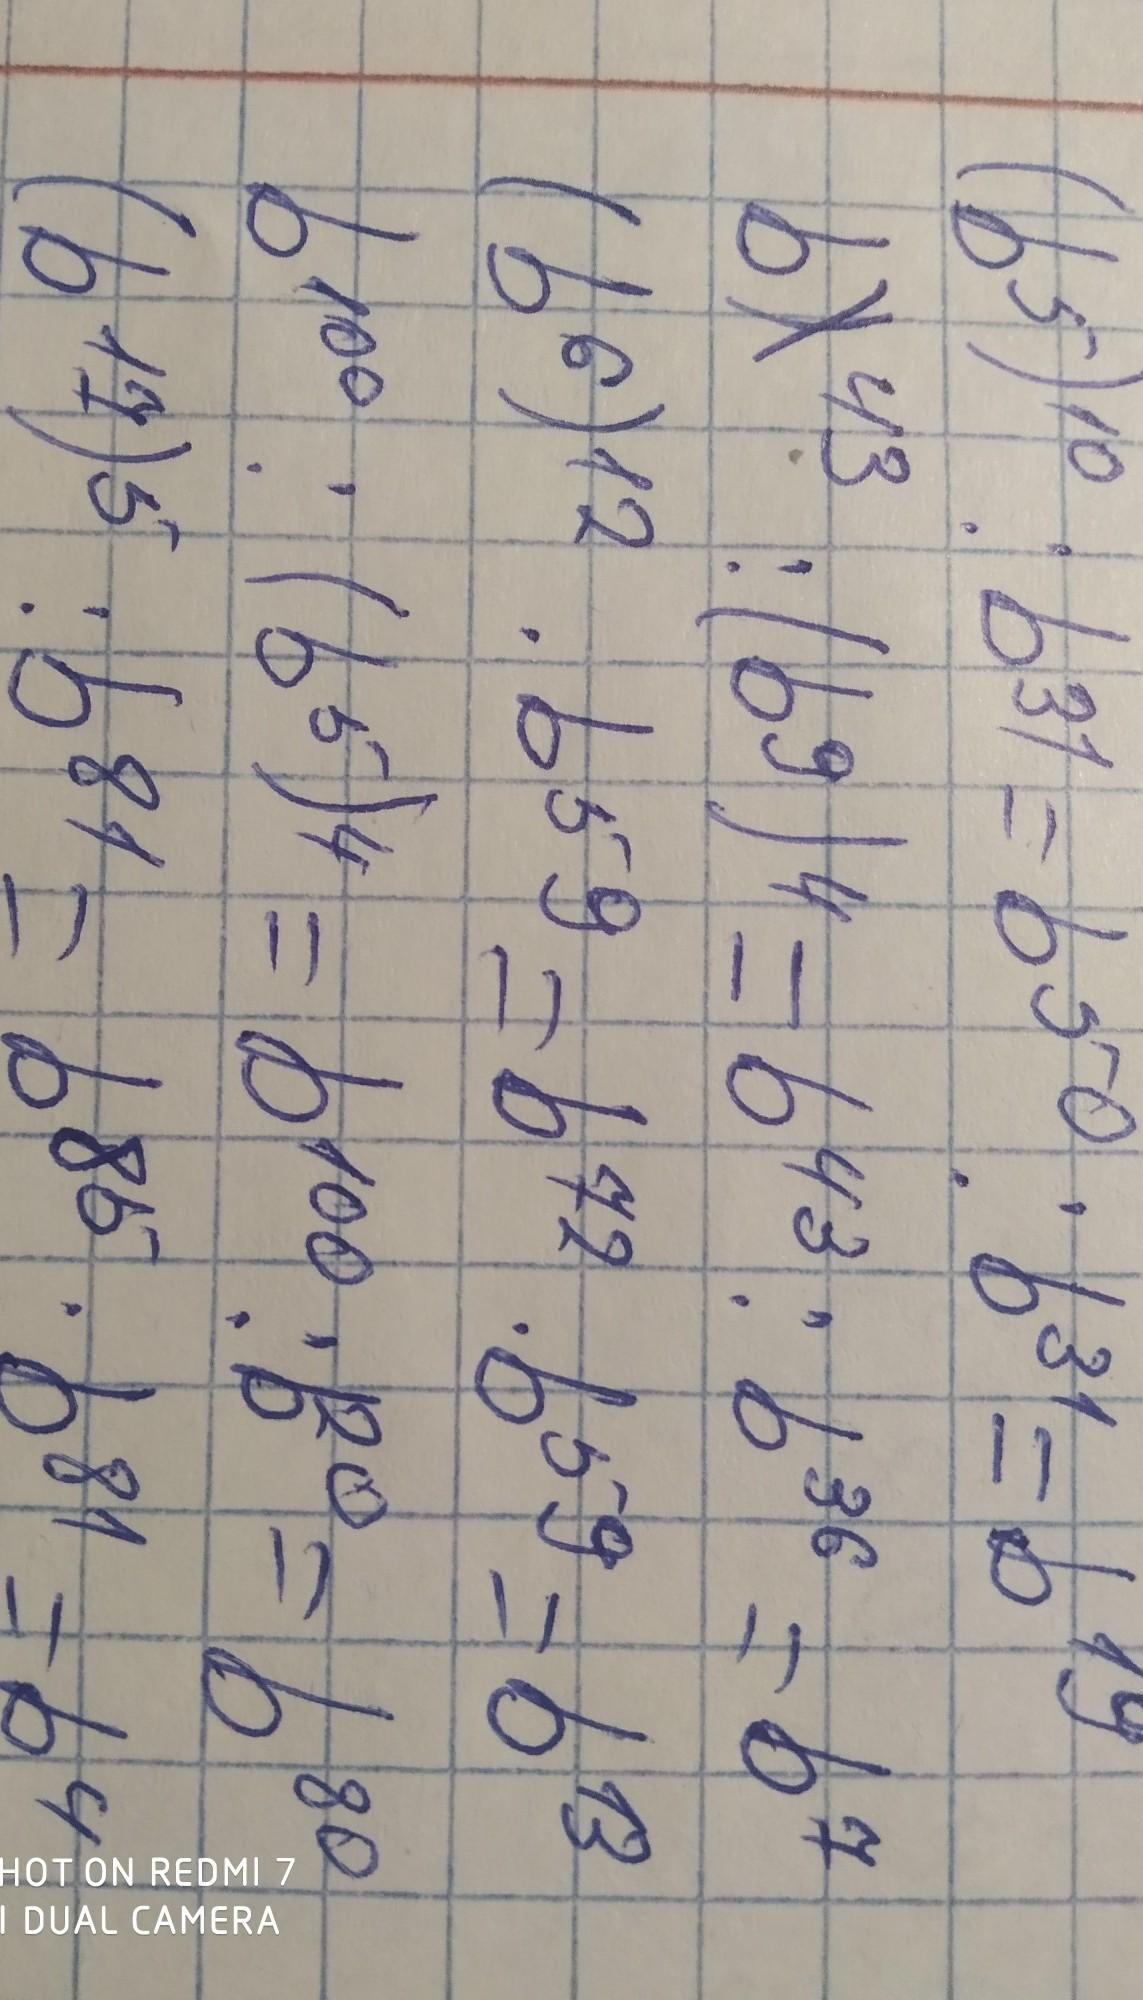 (b⁵)¹⁰ : b³¹ = b⁵⁰ : b³¹ = b¹⁹
b⁴³ : (b⁹)⁴ = b⁴³ : b³⁶ = b⁷
(b⁶)¹² · b⁵⁹ = b⁷² · b⁵⁹ = b¹³
b¹⁰⁰ : (b⁵)⁴ = b¹⁰⁰ : b²⁰ = b⁸⁰
(b¹⁷)⁵ : b⁸¹ = b⁸⁵ : b⁸¹ = b⁴
SHOT ON REDMI 7
AI DUAL CAMERA